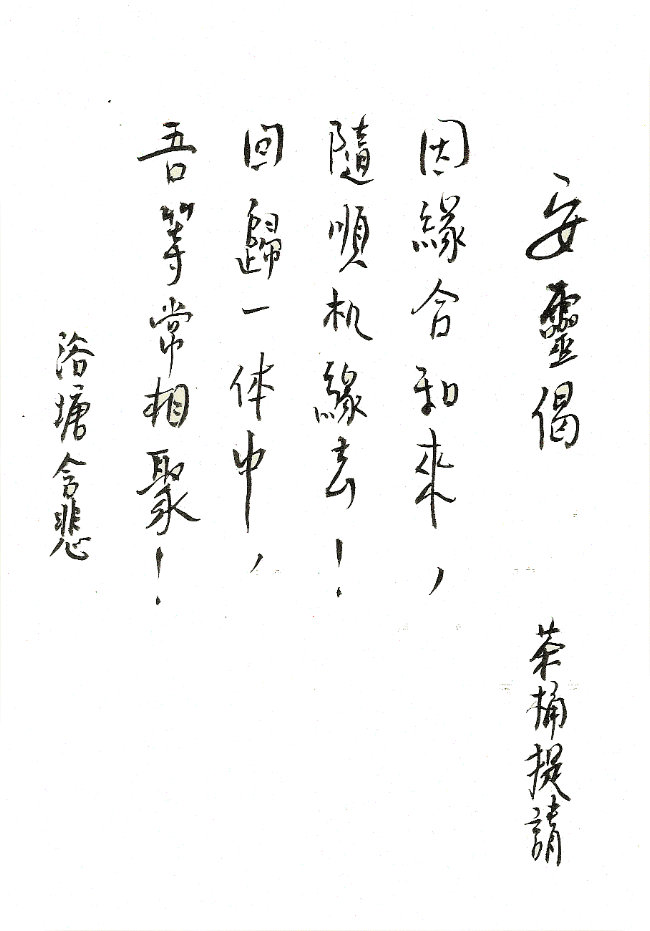 安靈偈
茶桶提請
因緣合和來，
隨順机緣去！
回歸一体中，
吾等常相聚！
浴塘含悲